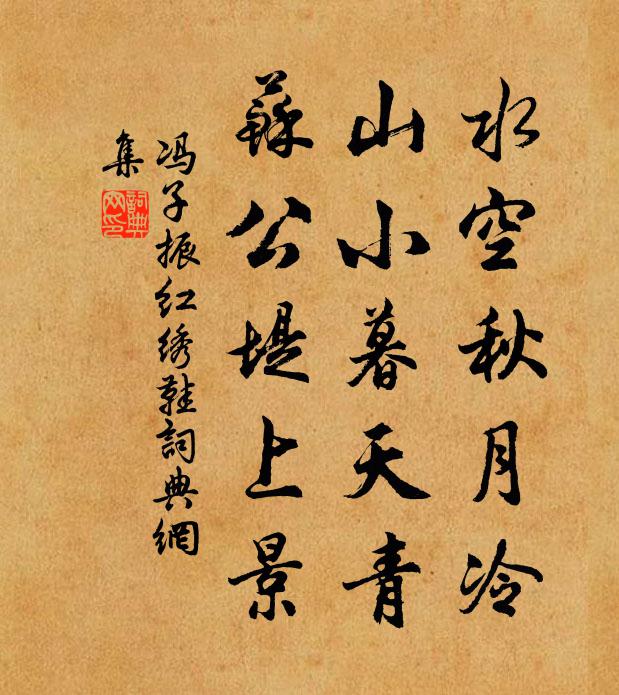 水空秋月冷
山小暮天青
蘇公堤上景
冯子振红绣鞋詞典網
集
詞典
网印